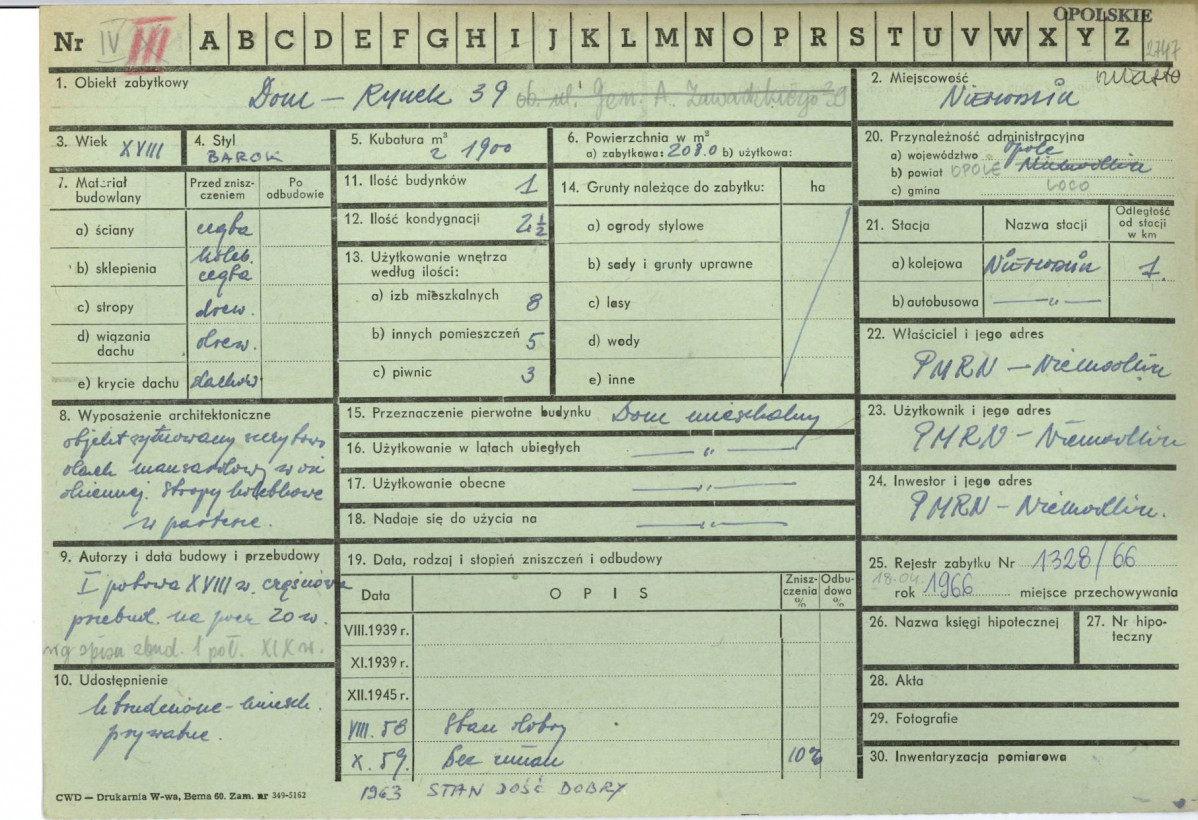 OPOLSKIE
Nr IV III A B C D E F G H I J K L M N O P R S T U V W X Y Z
2747
1. Obiekt zabytkowy
Dom – Rynek 39 ob. ul. Gen. A. Zawadzkiego 39
2. Miejscowość miasto
Niemodlin
3. Wiek XVIII
4. Styl
BAROK
5. Kubatura m³
1900
6. Powierzchnia w m²
a) zabytkowa: 208.0 b) użytkowa:
20. Przynależność administracyjna
a) województwo Opole
b) powiat OPOLE Niemodlin
c) gmina LOCO
7. Materiał budowlany
Przed zniszczeniem
Po odbudowie
a) ściany cegła
b) sklepienia koleb. cegła
c) stropy drew.
d) wiązania dachu drew.
e) krycie dachu dachów.
11. Ilość budynków 1
12. Ilość kondygnacji 2½
13. Użytkowanie wnętrza
według ilości:
a) izb mieszkalnych 8
b) innych pomieszczeń 5
c) piwnic 3
14. Grunty należące do zabytku: ha
a) ogrody stylowe
b) sady i grunty uprawne
c) lasy
d) wody
e) inne
21. Stacja Nazwa stacji Odległość od stacji w km
a) kolejowa Niemodlin 1.
b) autobusowa — „ —
22. Właściciel i jego adres
PMRN – Niemodlin
23. Użytkownik i jego adres
PMRN – Niemodlin
24. Inwestor i jego adres
PMRN – Niemodlin.
8. Wyposażenie architektoniczne
objekt sytuowany szczytowo
dach mansardowy w osi
okiennej. Stropy kolebkowe
w parterze.
15. Przeznaczenie pierwotne budynku Dom mieszkalny
16. Użytkowanie w latach ubiegłych — „ —
17. Użytkowanie obecne — „ —
18. Nadaje się do użycia na — „ —
9. Autorzy i data budowy i przebudowy
I połowa XVIII w. częściowa
przebud. na pocz. 20 w.
wg spisu zbud. 1 poł. XIX w.
10. Udostępnienie
Utrudnione – miesz.
prywatne.
19. Data, rodzaj i stopień zniszczeń i odbudowy
Data OPIS Zniszczenia % Odbudowa %
VIII.1939 r.
XI.1939 r.
XII.1945 r.
VIII. 58 Stan dobry
X. 59. Bez zmian 10%
1963 STAN DOŚĆ DOBRY
25. Rejestr zabytku Nr 1328/66
18.04 rok 1966 miejsce przechowywania
26. Nazwa księgi hipotecznej
27. Nr hipoteczny
28. Akta
29. Fotografie
30. Inwentaryzacja pomiarowa
CWD — Drukarnia W-wa, Bema 60. Zam. nr 349-5162